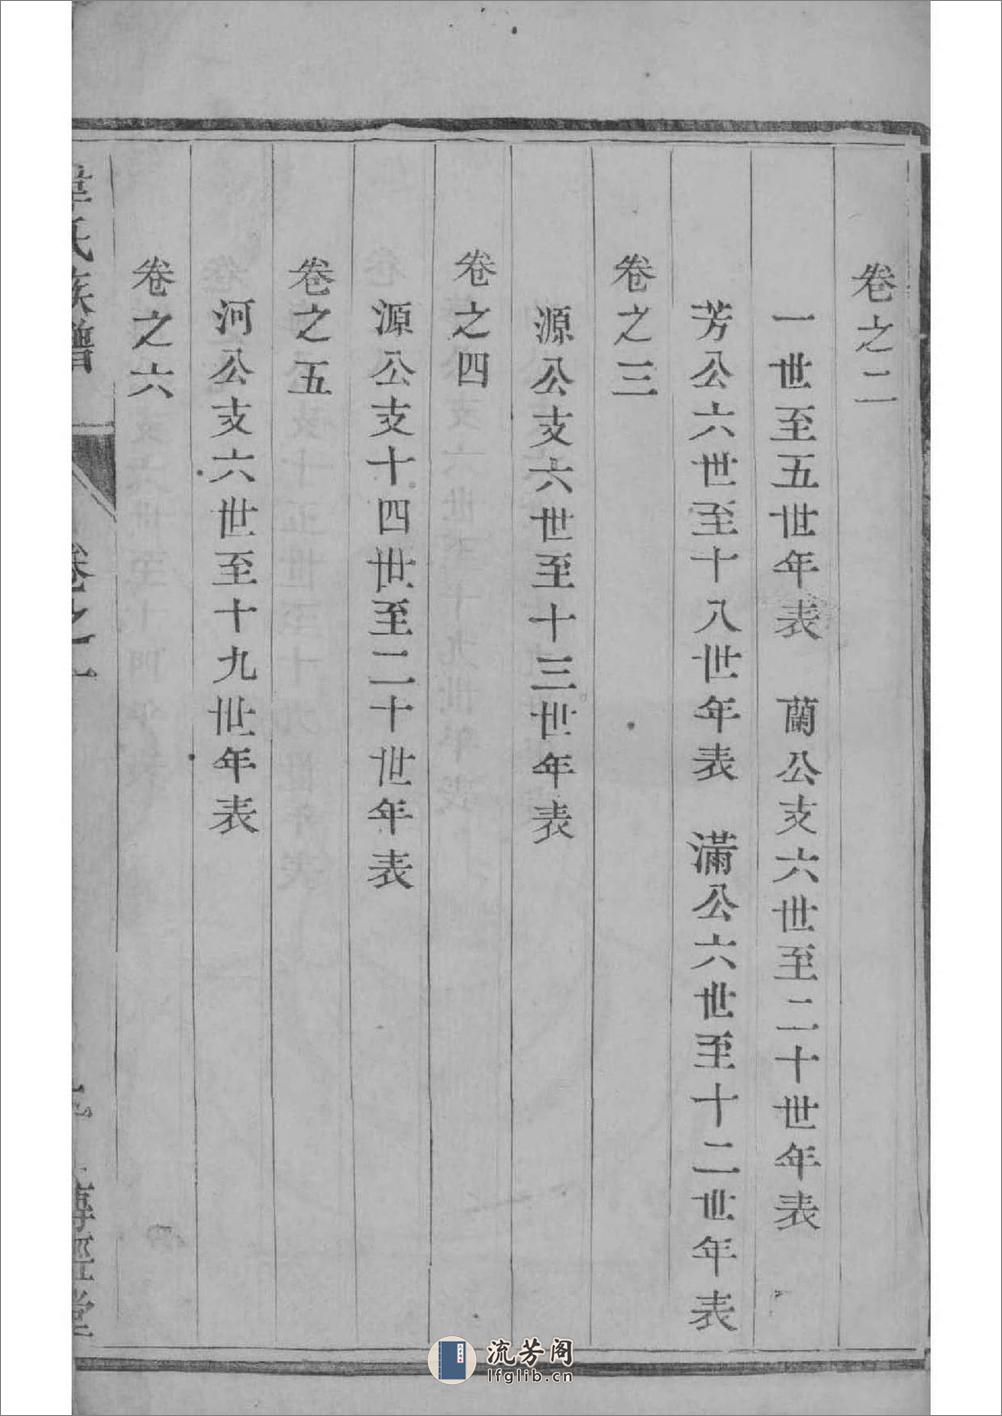 卷之二
一世至五世年表　蘭公支六世至二十世年表
芳公六世至十八世年表　滿公六世至十二世年表
卷之三
源公支六世至十三世年表
卷之四
源公支十四世至二十世年表
卷之五
河公支六世至十九世年表
卷之六
氏族譜
卷之一
傳經堂
流芳阁
lfglib.cn